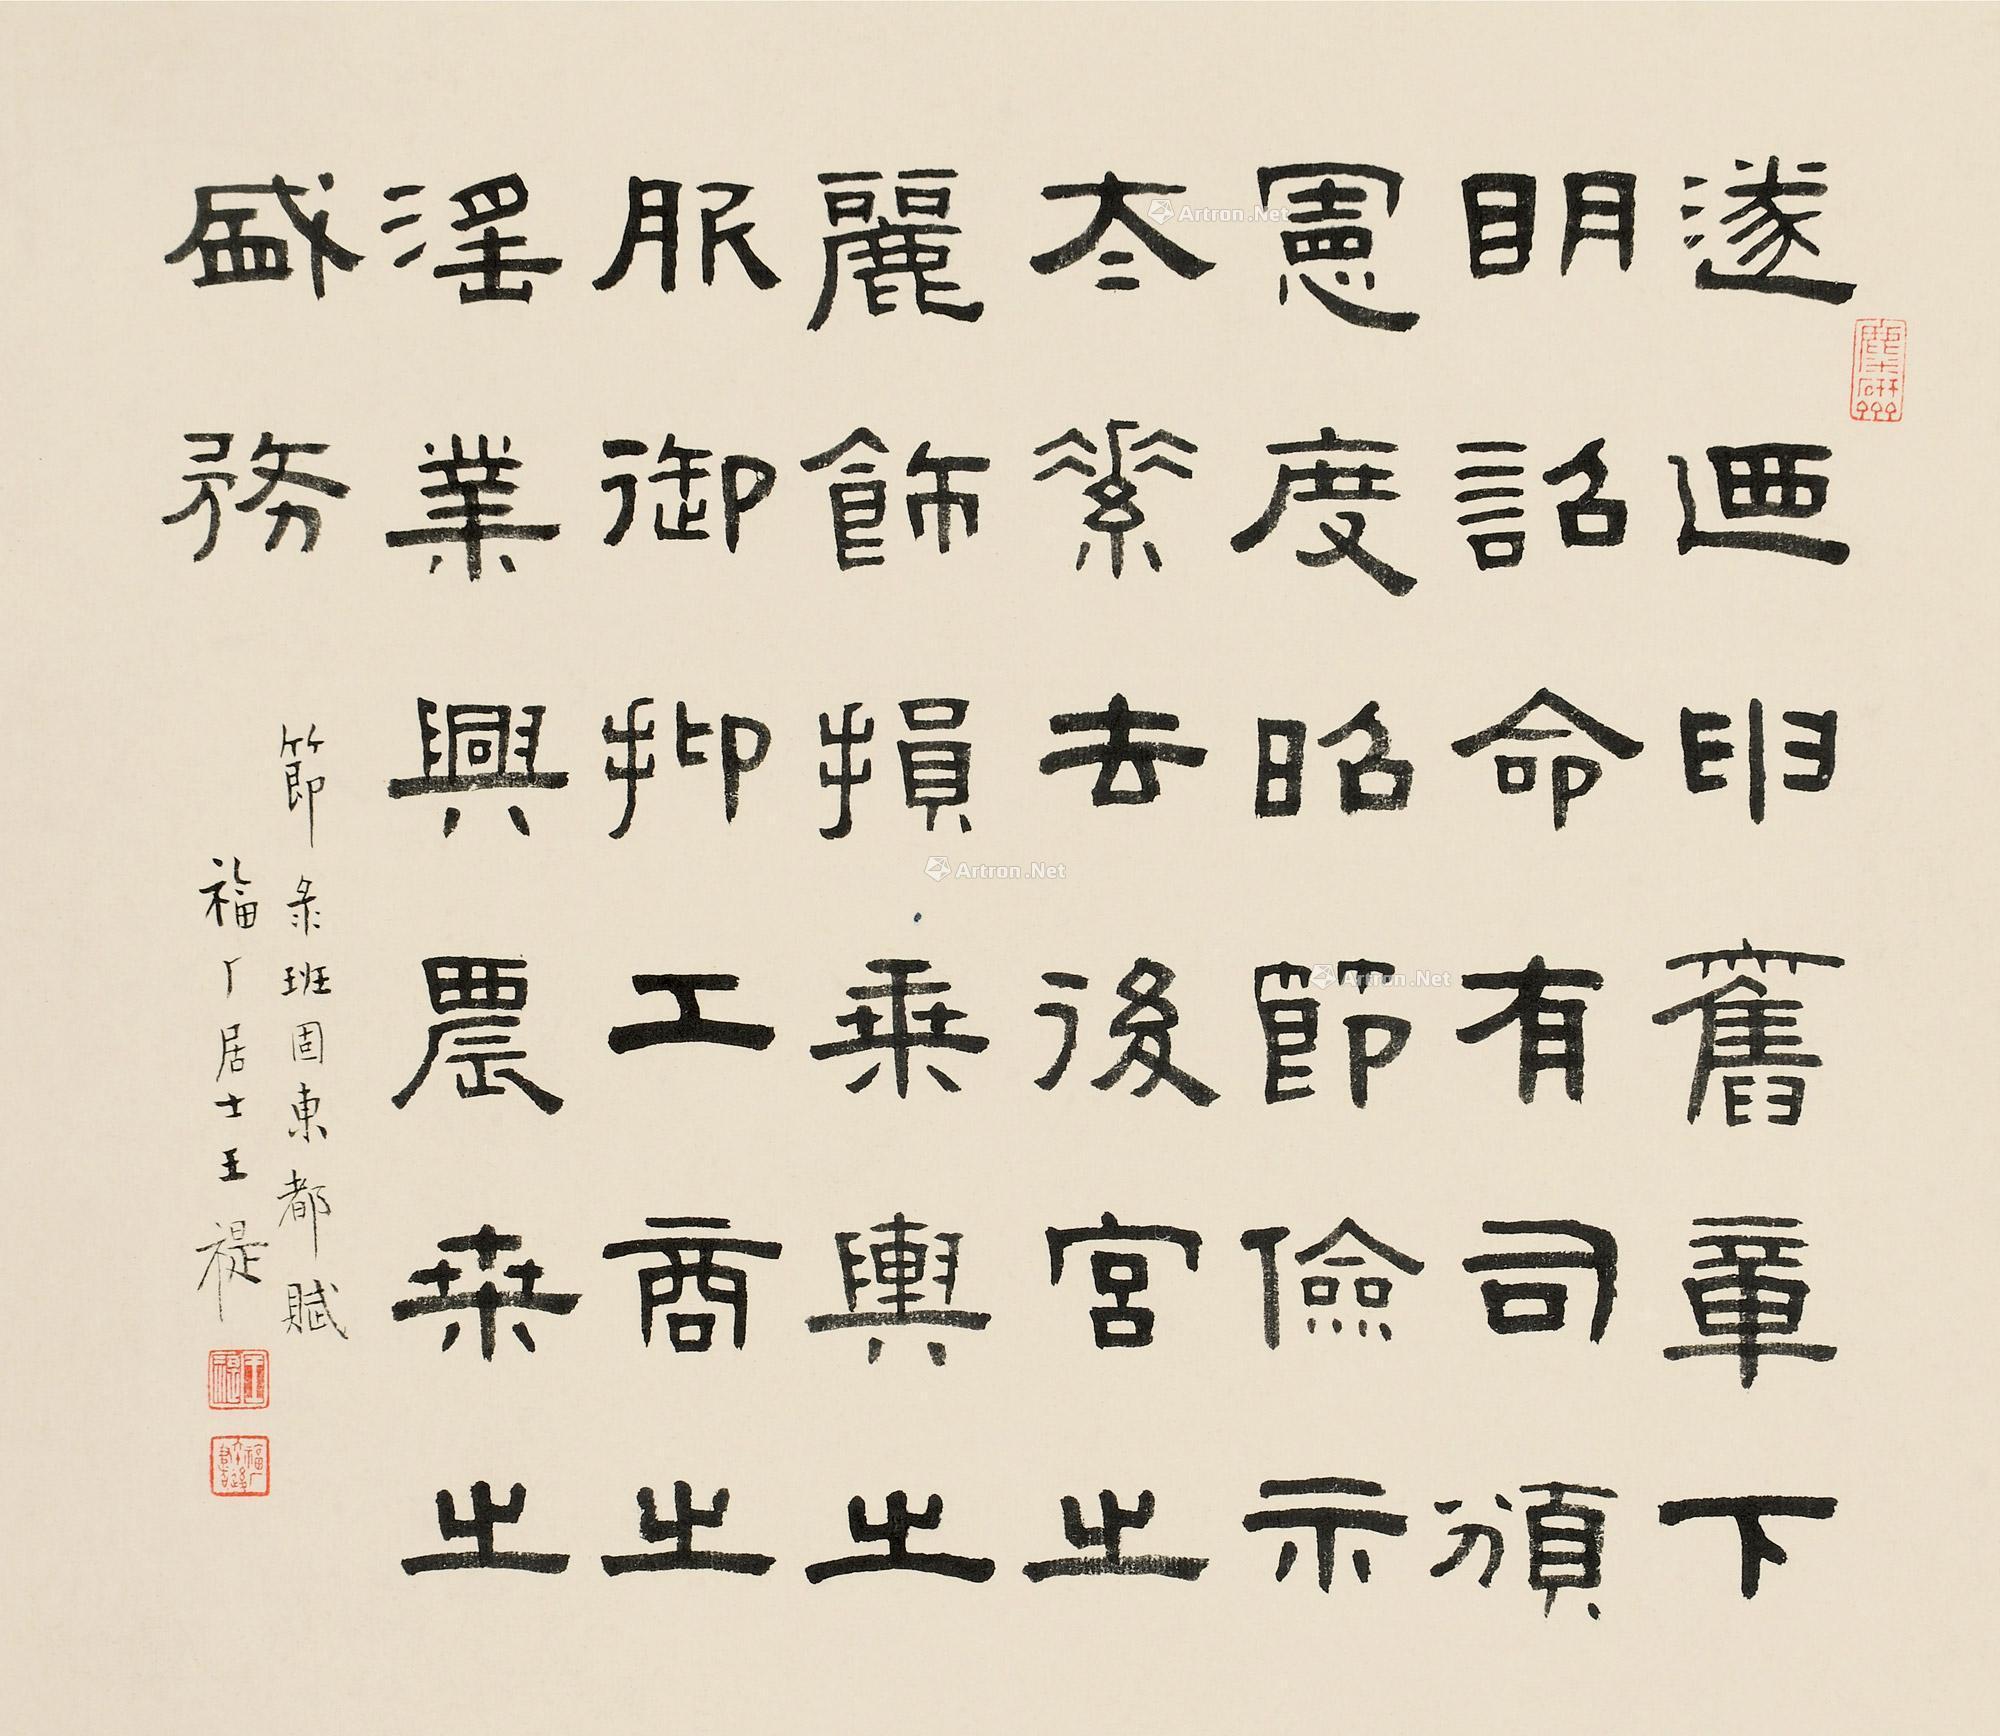 遂迺申舊章下
明詔命有司頒
憲度昭節儉示
太素去後宮之
麗飾損乘輿之
服御抑工商之
淫業興農桑之
盛務
節彔班固東都賦
福厂居士王禔
王禔
Artron.Net
Artron.Net
Artron.Net